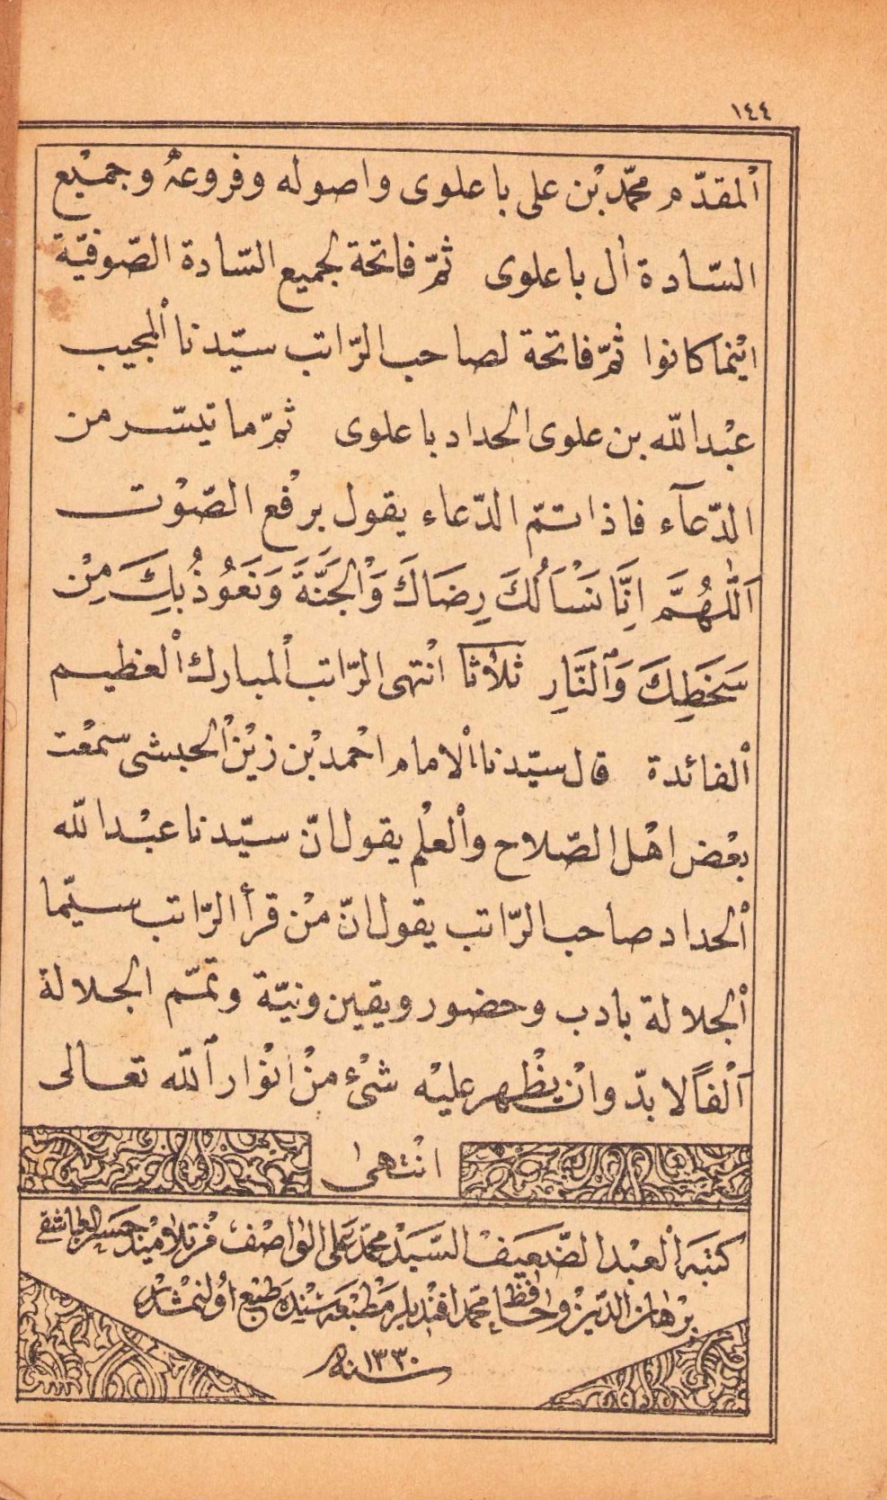 ١٤٤
اْلمقدّم محمّد بْن على با علوى واصوله وفروعهُ وجميْع
السّادة اٰل با علوى ثمّ فاتحة لجميع السّادة الصّوفيّة
ايْنما كانوا ثمّ فاتحة لصاحب الرّاتب سيّدنا اْلمجيب
عبْد اللّه بن علوى الحداد با علوى ثمّ ما تيسّر من
الدّعآء فاذا تمّ الدّعاء يقول برفْع الصّوْت
اَللّٰهُمَّ اِنَّا نَسْاَلُكَ رِضَاكَ وَاْلجَنَّةَ وَنَعُوْذُ بِكَ مِنْ
سَخَطِكَ وَالنَّارِ ثلاثا انْتهى الرّاتب اْلمبارك اْلعظيم
اْلفائدة قال سيّدنا اْلامام احْمد بْن زيْن اْلحبشى سمعْت
بعْض اهْل الصّلاح واْلعلْم يقول انّ سيّدنا عبْد اللّه
اْلحداد صاحب الرّاتب يقول انّ منْ قرأ الرّاتب سيّما
اْلجلالة بادب وحضور ويقين ونيّة وتمّم الجلالة
اَلْفاً لا بدّ وانْ يظْهر عليْه شىْء منْ انْوار اللّه تعالى
انْتهىٰ
كتبه اْلعبْد الضّعيف السّيّد محمّد على الواصف من تلاميذ حسن
برهان الدّين وحافظ محمّد افنديلر مطبعه سنده طبع اولنمشدر
سنه ١٣٣٠